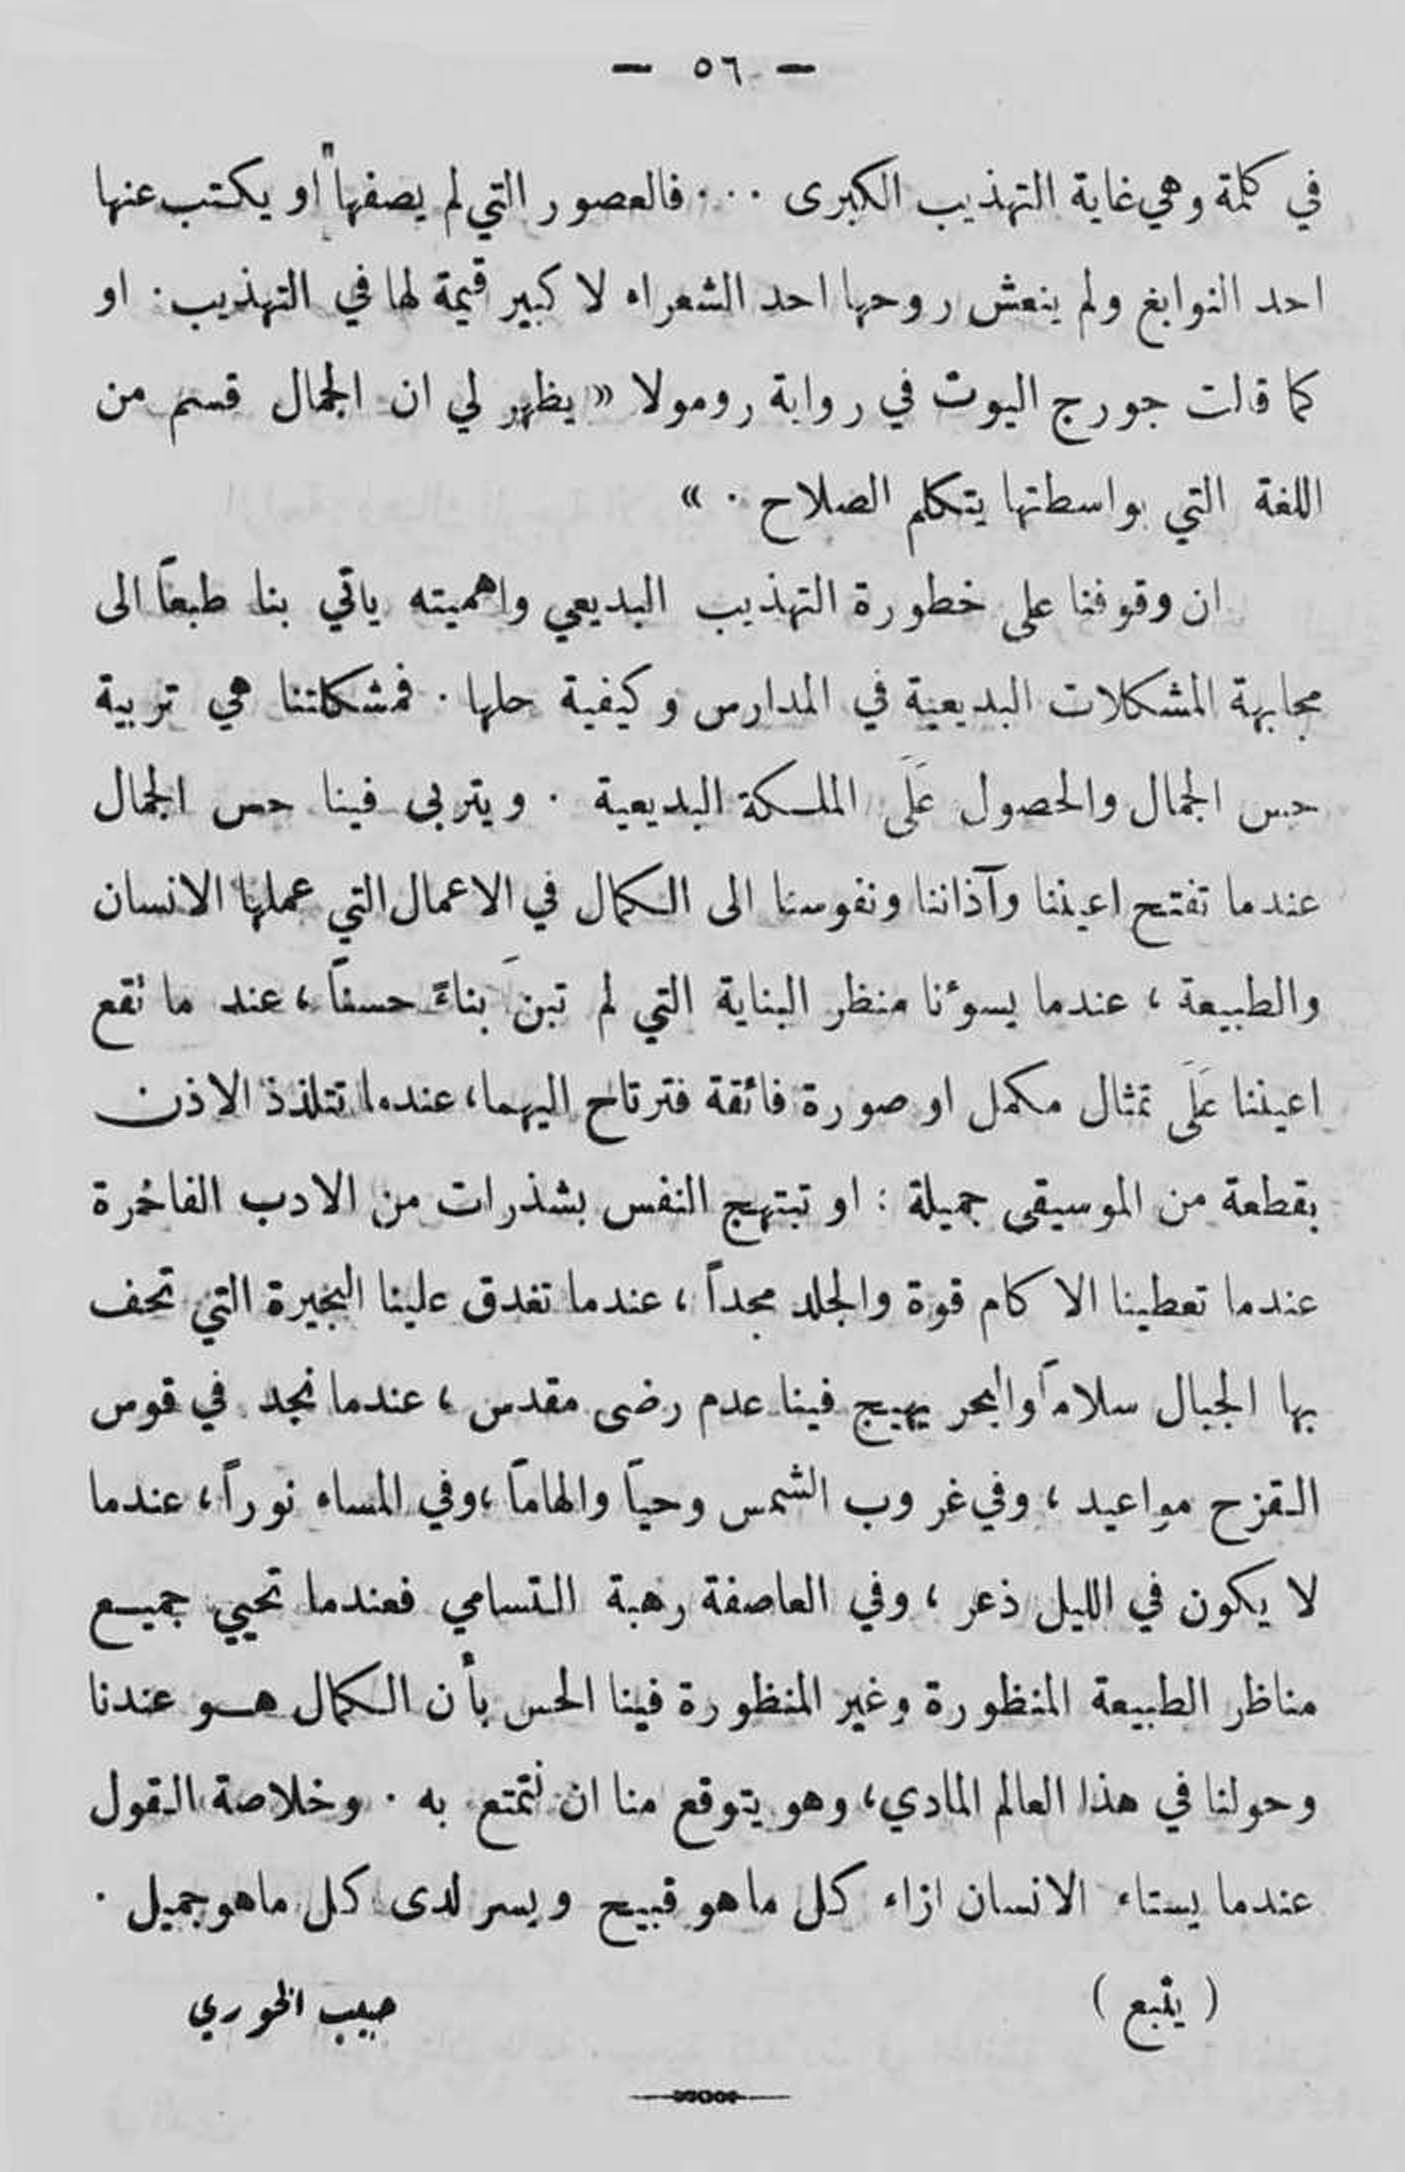 — ٥٦ —
في كلمة وهي غاية التهذيب الكبرى ٠٠٠ فالعصور التي لم يصفها او يكتب عنها
احد النوابغ ولم ينعش روحها احد الشعراء لا كبير قيمة لها في التهذيب . او
كما قالت جورج اليوت في رواية رومولا « يظهر لي ان الجمال قسم من
اللغة التي بواسطتها يتكلم الصلاح . »
ان وقوفنا على خطورة التهذيب البديعي واهميته يأتي بنا طبعاً الى
مجابهة المشكلات البديعية في المدارس وكيفية حلها . فمشكلتنا هي تربية
حس الجمال والحصول عَلَى الملكة البديعية . ويتربى فينا حس الجمال
عندما تفتح اعيننا وآذاننا ونفوسنا الى الكمال في الاعمال التي عملها الانسان
والطبيعة ، عندما يسوءنا منظر البناية التي لم تبنَ بناءً حسناً ، عند ما تقع
اعيننا عَلَى تمثال مكمل او صورة فائقة فترتاح اليهما، عندما تتلذذ الاذن
بقطعة من الموسيقى جميلة : او تبتهج النفس بشذرات من الادب الفاخرة
عندما تعطينا الاكام قوة والجلد مجداً ، عندما تغدق علينا البحيرة التي تحف
بها الجبال سلاماً والبحر يهيج فينا عدم رضى مقدس ، عندما نجد في قوس
القزح مواعيد ، وفي غروب الشمس وحياً والهاماً ، وفي المساء نوراً ، عندما
لا يكون في الليل ذعر ، وفي العاصفة رهبة التسامي فعندما تحيي جميع
مناظر الطبيعة المنظورة وغير المنظورة فينا الحس بأن الكمال هو عندنا
وحولنا في هذا العالم المادي، وهو يتوقع منا ان نتمتع به . وخلاصة القول
عندما يستاء الانسان ازاء كل ما هو قبيح ويسر لدى كل ماهو جميل .
( يتبع ) حبيب الخوري